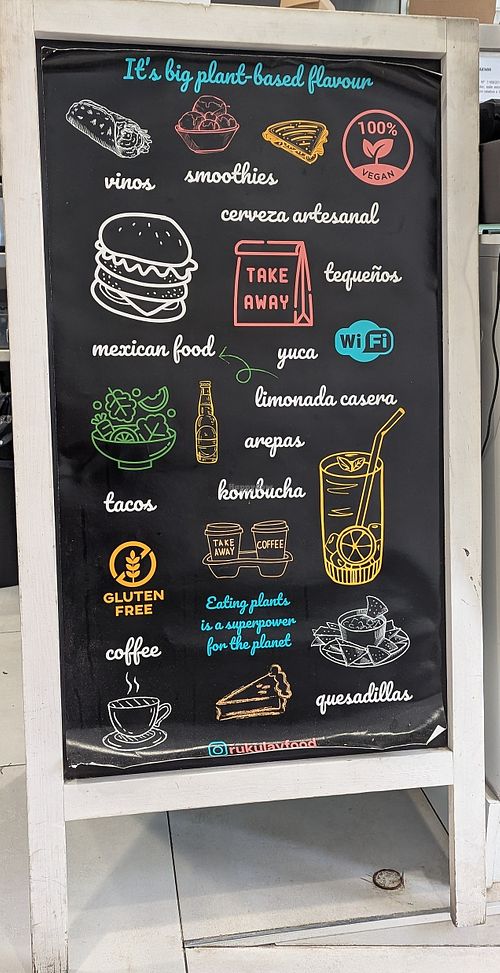 It's big plant-based flavour
100%
VEGAN
vinos
smoothies
cerveza artesanal
TAKE
AWAY
tequeños
mexican food
yuca
WiFi
limonada casera
arepas
tacos
kombucha
TAKE
AWAY
COFFEE
GLUTEN
FREE
Eating plants
is a superpower
for the planet
coffee
quesadillas
rukulayfood